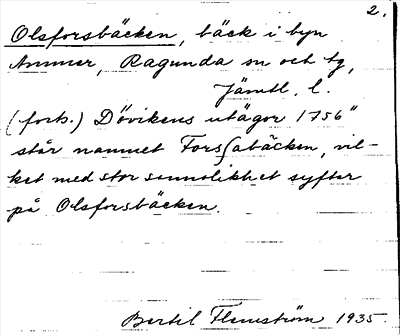 2.
Olsforsbäcken, bäck i byn
Ammer, Ragunda sn och tg,
Jämtl. l.
(forts.) Dövikens utägor 1756"
står namnet Forssabäcken, vil-
ket med stor sannolikhet syftar
på Olsforsbäcken.
Bertil Flemström 1935.